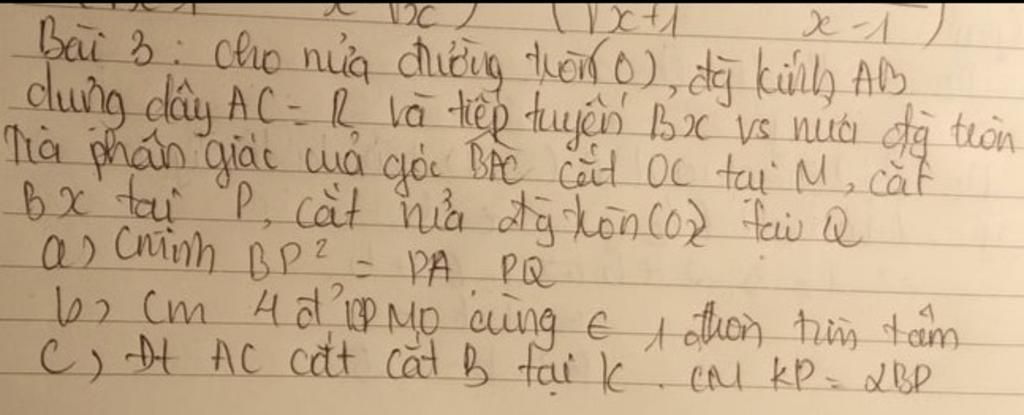 x √x ) ( √x+1 x-1 )
Bài 3: Cho nửa đường tròn(O), đg kính AB
dựng dây AC = R và tiếp tuyến Bx vs nửa đg tròn
Tia phân giác của góc BAC cắt OC tại M, cắt
Bx tại P, cắt nửa đg tròn(O) tại Q
a) Cminh BP² = PA. PQ
b) Cm 4 đ' MO cùng ∈ 1 tròn tâm
c) Đt AC cắt cắt B tại K. CM KP = 2BP